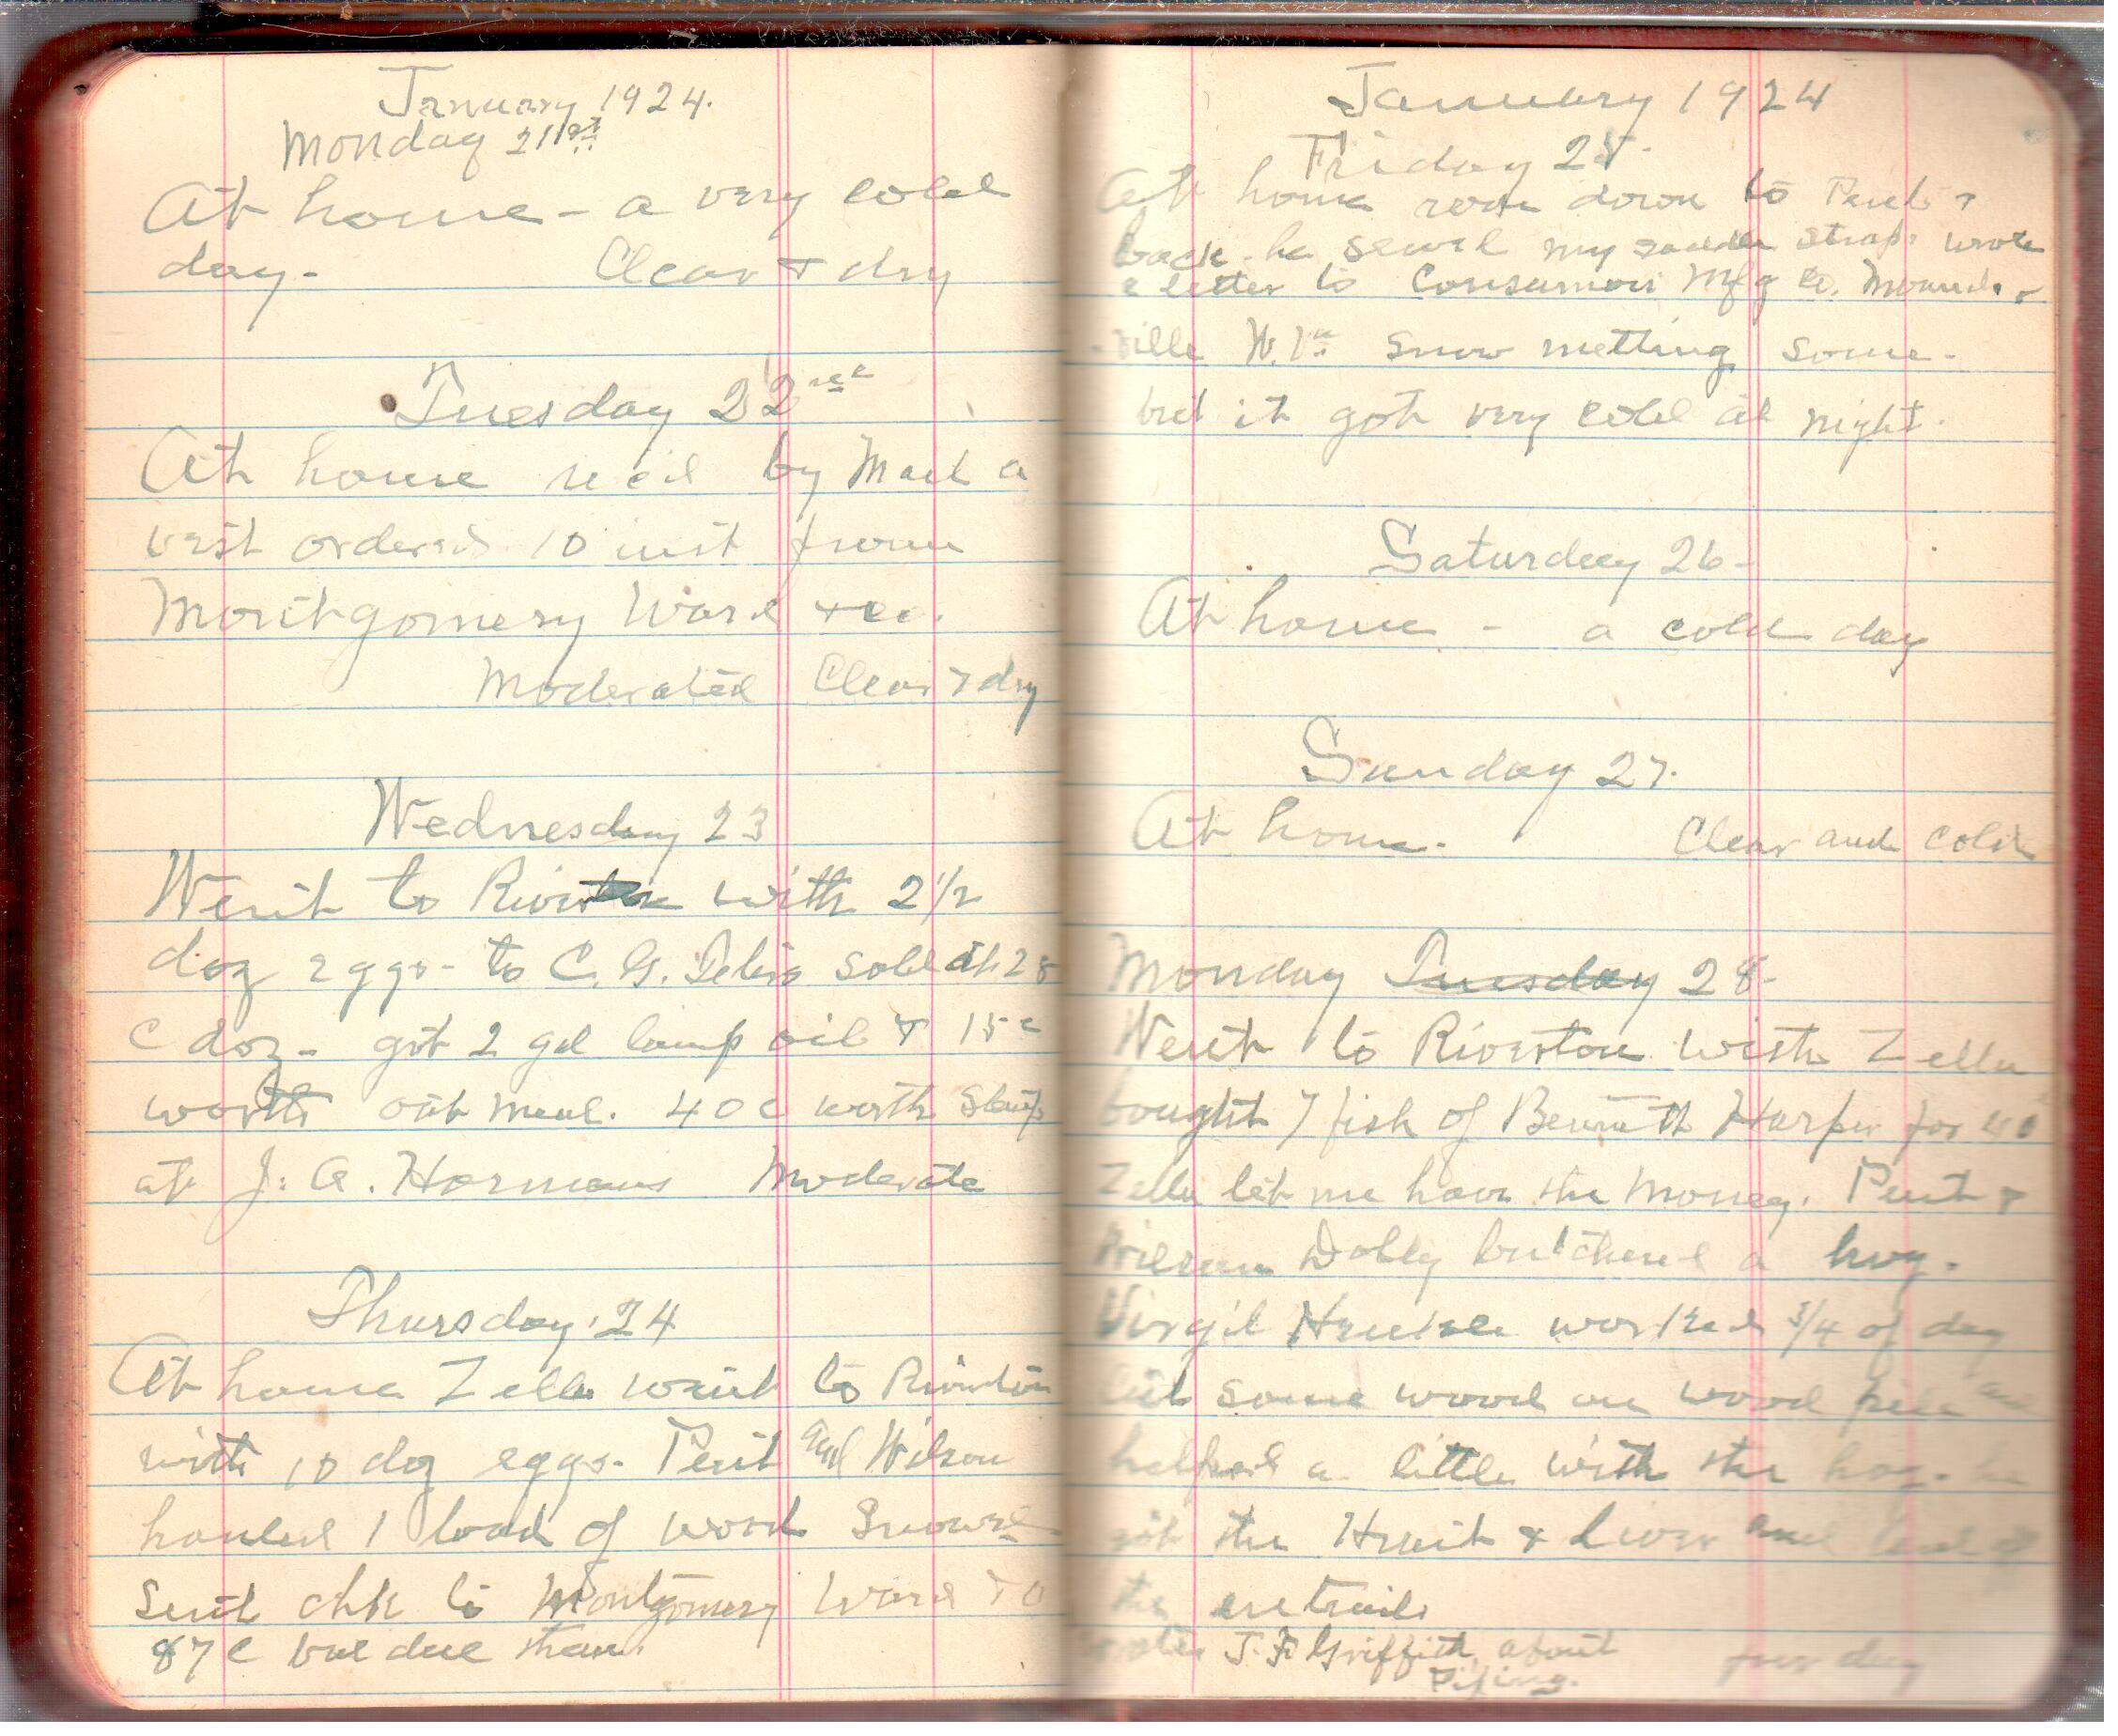 January 1924.
Monday 21st
At home - a very cold
day. Clear & dry
Tuesday 22nd
At home rec'd by Mail a
vest ordered 10 inst from
Montgomery Ward & Co.
Moderated Clear & dry
Wednesday 23
Went to Riverton with 2 1/2
doz eggs - to C. G. sold at 28
c doz - got 2 gal lamp oil & 15c
worth oat meal. 40c worth
at J. A. Harmans Moderate
Thursday 24
At home Zella went to Riverton
with 10 doz eggs. Pent and Wilson
hauled 1 load of wood Snowed
Sent chk to Montgomery Ward & Co
87c bal due them
January 1924
Friday 25.
At home rode down to Pent's &
back - he sewed my saddle straps wrote
a letter to Consumers Mfg Co. Mounds-
-ville W. Va Snow melting some -
but it got very cold at night.
Saturday 26 -
At home - a cold day
Sunday 27.
At home. Clear and cold
Monday Tuesday 28 -
Went to Riverton with Zella
bought 7 fish of Bennett Harper for 40c
Zella let me have the money. Pent &
Wilson Dolly butchered a hog.
Virgil worked 3/4 of day
cut some wood on wood pile and
helped a little with the hog - he
got the & Liver and
the entrails
J. F. Griffith about
Piping. day